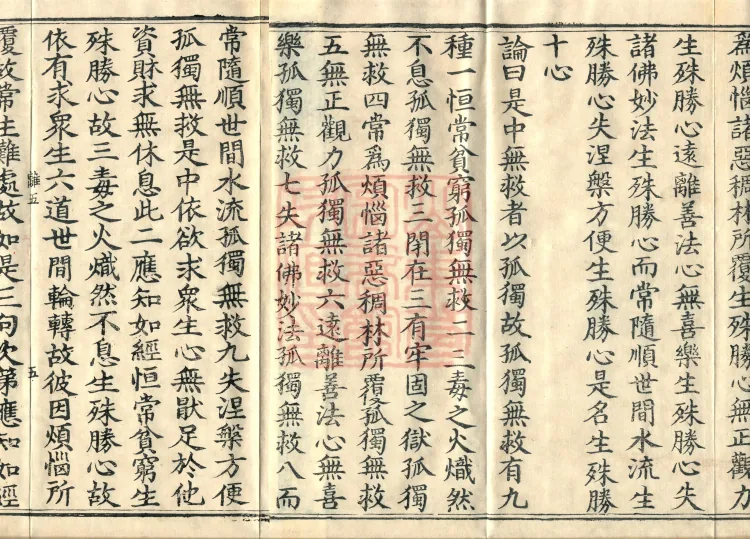 為煩惱諸惡稠林所覆生殊勝心無正觀力
生殊勝心遠離善法心無喜樂生殊勝心失
諸佛妙法生殊勝心而常隨順世間水流生
殊勝心失涅槃方便生殊勝心是名生殊勝
十心
論曰是中無救者以孤獨故孤獨無救有九
種一恒常貧窮孤獨無救二三毒之火熾然
不息孤獨無救三閉在三有牢固之獄孤獨
無救四常為煩惱諸惡稠林所覆孤獨無救
五無正觀力孤獨無救六遠離善法心無喜
樂孤獨無救七失諸佛妙法孤獨無救八而
常隨順世間水流孤獨無救九失涅槃方便
孤獨無救是中依欲求眾生心無猒足於他
資財求無休息此二應知如經恒常貧窮生
殊勝心故三毒之火熾然不息生殊勝心故
依有求眾生六道世間輪轉故彼因煩惱所
離五
五
覆故常生難處故如是三句次第應知如經